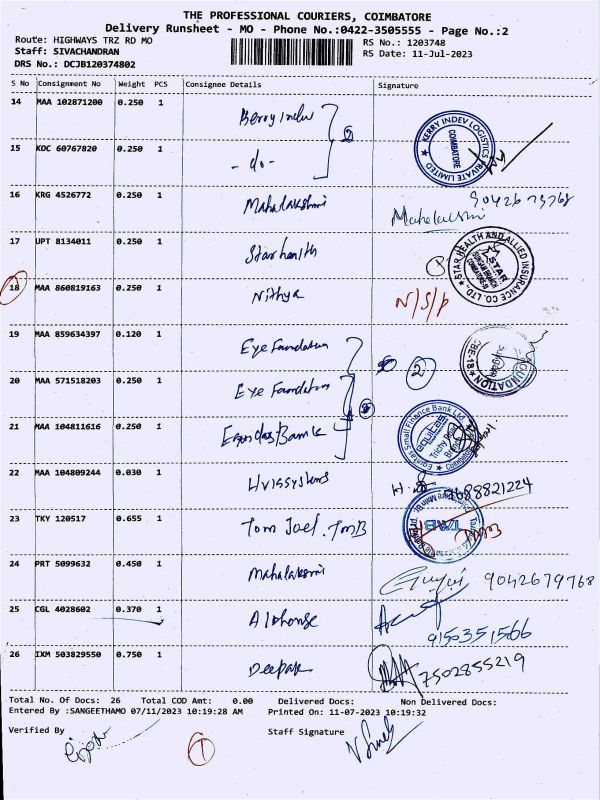 THE PROFESSIONAL COURIERS, COIMBATORE
Delivery Runsheet - MO - Phone No.:0422-3505555 - Page No.:2
Route: HIGHWAYS TRZ RD MO
RS No.: 1203748
Staff: SIVACHANDRAN
RS Date: 11-Jul-2023
DRS No.: DCJB120374802
S No Consignment No Weight PCS Consignee Details Signature
14 MAA 102871200 0.250 1
KERRY INDEV LOGISTICS PRIVATE LIMITED COIMBATORE
15 KDC 60767820 0.250 1 - do -
16 KRG 4526772 0.250 1 Mahalakshmi
17 UPT 8134011 0.250 1 Starhealth
STAR HEALTH AND ALLIED INSURANCE CO. LTD. STAR
18 MAA 860819163 0.250 1 Nithya N/S/P
19 MAA 859634397 0.120 1 Eye Foundation 2
FOUNDATION CBE-18
20 MAA 571518203 0.250 1 Eye Foundation
21 MAA 104811616 0.250 1 Equitas Bank
Equitas Small Finance Bank Ltd. equitas Trichy Road
22 MAA 104809244 0.030 1 9688821224
23 TKY 120517 0.655 1 Tom Joel. TMB
24 PRT 5099632 0.450 1 Mahalakshmi 9042679768
25 CGL 4028602 0.370 1 Alphonse
9150351566
26 IXM 503829550 0.750 1 Deepak 7502855219
Total No. Of Docs: 26 Total COD Amt: 0.00 Delivered Docs: Non Delivered Docs:
Entered By :SANGEETHAMO 07/11/2023 10:19:28 AM Printed On: 11-07-2023 10:19:32
Verified By Staff Signature
1